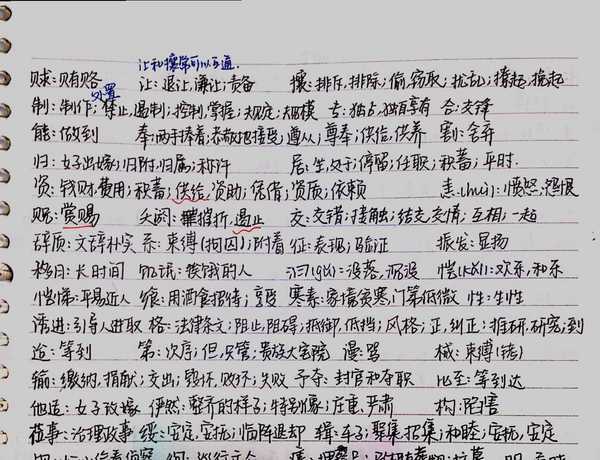 让和攘常可以互通.
赇:贿赂 让:退让,谦让;责备 攘:排斥,排除;偷,窃取;扰乱;撩起,挽起
处置
制:制作;禁止,遏制;控制,掌握;规定;规模 专:独占,独自享有 合:交锋
能:做到 奉:两手捧着;恭敬地接受;遵从;尊奉;供给,供养 割:舍弃
归:女子出嫁;归附,归属;称许 居:坐;处于;停留;任职;积蓄;平时.
资:钱财,费用;积蓄;供给,资助;凭借;资质;依赖 恚(huì):愤怒,怨恨
赐:赏赐 夭阏:摧折,遏止 交:交错;接触;结交,交情;互相;一起
辞质:文辞朴实 系:束缚(拘囚);附着 征:表现;验证 振发:显扬
移日:长时间 饥氓:挨饿的人 汩(gǔ):没落,沉没 恺(kǎi):欢乐,和乐
恺悌:平易近人 飨:用酒食招待;享受 寒素:家境贫寒,门第低微 性:生性
诱进:引导人进取 格:法律条文;阻止,阻碍;抵御,抵挡;风格;正,纠正;推研,研究;到
迨:等到 第:次序;但,只管;贵族大宅院 谩:骂 械:束缚(铐)
输:缴纳,捐献;交出;毁坏,败坏;失败 予夺:封官和夺职 比至:等到达
他适:女子改嫁 俨然:整齐的样子;特别像;庄重,严肃 构:陷害
莅事:治理政事 绥:安定,安抚;临阵退却 辑:车子;聚集,招集;和睦;安抚,安定